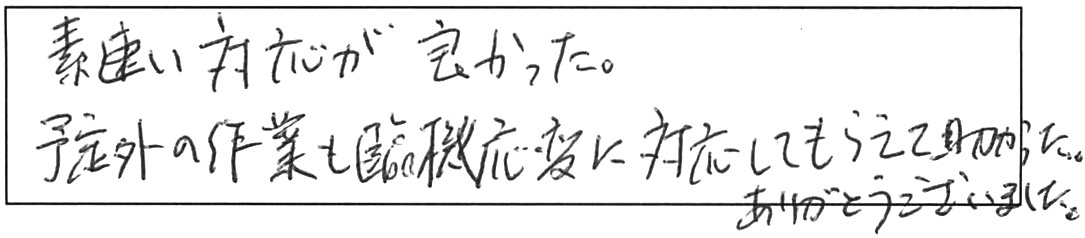 素速い対応が良かった。
予定外の作業も臨機応変に対応してもらえて助かった。
ありがとうございました。